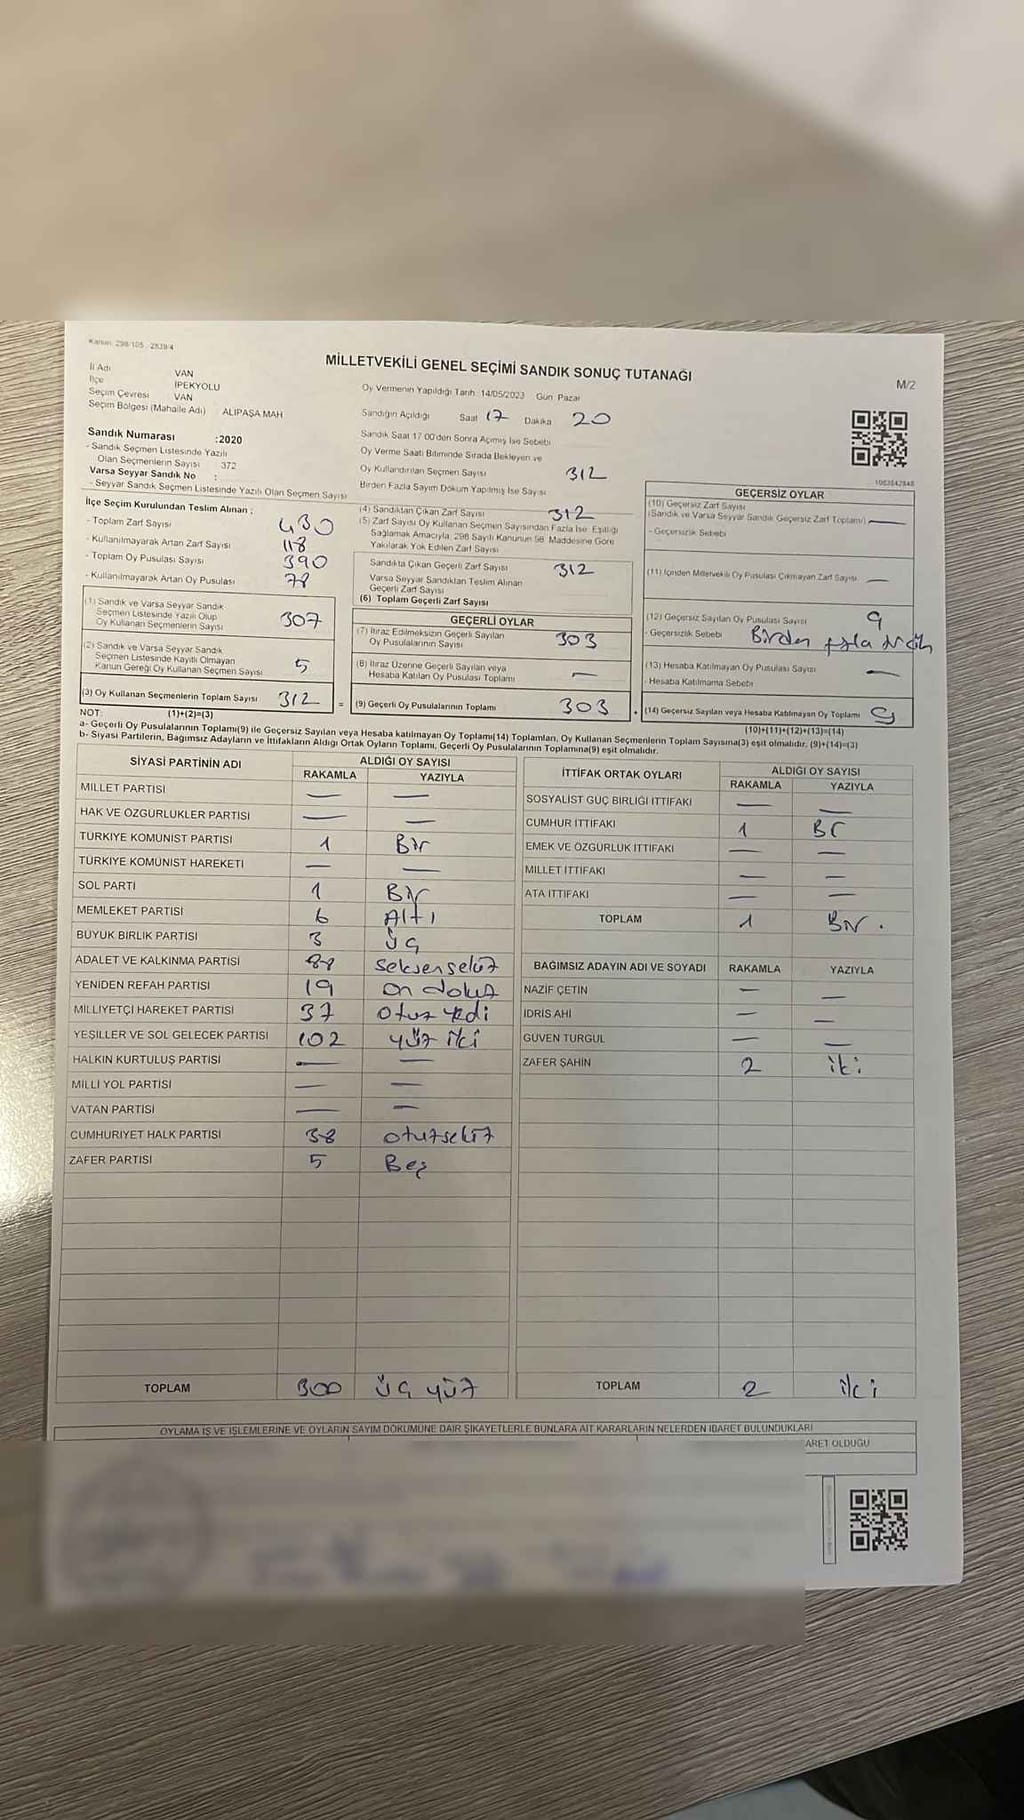 Kanun: 298/105 - 2839/4
MİLLETVEKİLİ GENEL SEÇİMİ SANDIK SONUÇ TUTANAĞI
M/2
İl Adı VAN
İlçe İPEKYOLU
Seçim Çevresi VAN
Seçim Bölgesi (Mahalle Adı) : ALIPAŞA MAH
Sandık Numarası :2020
- Sandık Seçmen Listesinde Yazılı
Olan Seçmenlerin Sayısı 372
Varsa Seyyar Sandık No :
- Seyyar Sandık Seçmen Listesinde Yazılı Olan Seçmen Sayısı
Oy Vermenin Yapıldığı Tarih: 14/05/2023 Gün: Pazar
Sandığın Açıldığı Saat 17 Dakika 20
Sandık Saat 17:00'den Sonra Açılmış İse Sebebi
Oy Verme Saati Bitiminde Sırada Bekleyen ve
Oy Kullandırılan Seçmen Sayısı 312
Birden Fazla Sayım Döküm Yapılmış İse Sayısı
1063842848
İlçe Seçim Kurulundan Teslim Alınan :
- Toplam Zarf Sayısı 430
- Kullanılmayarak Artan Zarf Sayısı 118
- Toplam Oy Pusulası Sayısı 390
- Kullanılmayarak Artan Oy Pusulası 78
(1) Sandık ve Varsa Seyyar Sandık
Seçmen Listesinde Yazılı Olup
Oy Kullanan Seçmenlerin Sayısı 307
(2) Sandık ve Varsa Seyyar Sandık
Seçmen Listesinde Kayıtlı Olmayan
Kanun Gereği Oy Kullanan Seçmen Sayısı 5
(3) Oy Kullanan Seçmenlerin Toplam Sayısı 312 =
(4) Sandıktan Çıkan Zarf Sayısı 312
(5) Zarf Sayısı Oy Kullanan Seçmen Sayısından Fazla İse, Eşitliği
Sağlamak Amacıyla, 298 Sayılı Kanunun 98. Maddesine Göre
Yakılarak Yok Edilen Zarf Sayısı
Sandıkta Çıkan Geçerli Zarf Sayısı 312
Varsa Seyyar Sandıktan Teslim Alınan
Geçerli Zarf Sayısı
(6) Toplam Geçerli Zarf Sayısı
GEÇERLİ OYLAR
(7) İtiraz Edilmeksizin Geçerli Sayılan
Oy Pusulalarının Sayısı 303
(8) İtiraz Üzerine Geçerli Sayılan veya
Hesaba Katılan Oy Pusulası Toplamı —
(9) Geçerli Oy Pusulalarının Toplamı 303 +
GEÇERSİZ OYLAR
(10) Geçersiz Zarf Sayısı
(Sandık ve Varsa Seyyar Sandık Geçersiz Zarf Toplamı) —
- Geçersizlik Sebebi
(11) İçinden Milletvekili Oy Pusulası Çıkmayan Zarf Sayısı —
(12) Geçersiz Sayılan Oy Pusulası Sayısı 9
- Geçersizlik Sebebi Birden fazla
(13) Hesaba Katılmayan Oy Pusulası Sayısı —
- Hesaba Katılmama Sebebi
(14) Geçersiz Sayılan veya Hesaba Katılmayan Oy Toplamı 9
NOT: (1)+(2)=(3)
(10)+(11)+(12)+(13)=(14)
a- Geçerli Oy Pusulalarının Toplamı(9) ile Geçersiz Sayılan veya Hesaba katılmayan Oy Toplamı(14) Toplamları, Oy Kullanan Seçmenlerin Toplam Sayısına(3) eşit olmalıdır. (9)+(14)=(3)
b- Siyasi Partilerin, Bağımsız Adayların ve İttifakların Aldığı Ortak Oyların Toplamı, Geçerli Oy Pusulalarının Toplamına(9) eşit olmalıdır.
SİYASİ PARTİNİN ADI ALDIĞI OY SAYISI
RAKAMLA YAZIYLA
MİLLET PARTİSİ — —
HAK VE ÖZGÜRLÜKLER PARTİSİ — —
TÜRKİYE KOMÜNİST PARTİSİ 1 Bir
TÜRKİYE KOMÜNİST HAREKETİ — —
SOL PARTİ 1 Bir
MEMLEKET PARTİSİ 6 Altı
BÜYÜK BİRLİK PARTİSİ 3 üç
ADALET VE KALKINMA PARTİSİ 88 seksensekiz
YENİDEN REFAH PARTİSİ 19 on dokuz
MİLLİYETÇİ HAREKET PARTİSİ 37 otuz yedi
YEŞİLLER VE SOL GELECEK PARTİSİ 102 yüz iki
HALKIN KURTULUŞ PARTİSİ — —
MİLLİ YOL PARTİSİ — —
VATAN PARTİSİ — —
CUMHURİYET HALK PARTİSİ 38 otuzsekiz
ZAFER PARTİSİ 5 Beş
TOPLAM 300 üç yüz
İTTİFAK ORTAK OYLARI ALDIĞI OY SAYISI
RAKAMLA YAZIYLA
SOSYALİST GÜÇ BİRLİĞİ İTTİFAKI — —
CUMHUR İTTİFAKI 1 Bir
EMEK VE ÖZGÜRLÜK İTTİFAKI — —
MİLLET İTTİFAKI — —
ATA İTTİFAKI — —
TOPLAM 1 Bir.
BAĞIMSIZ ADAYIN ADI VE SOYADI RAKAMLA YAZIYLA
NAZİF ÇETİN — —
İDRİS AHİ — —
GÜVEN TURGUL — —
ZAFER ŞAHİN 2 iki
TOPLAM 2 iki
OYLAMA İŞ VE İŞLEMLERİNE VE OYLARIN SAYIM DÖKÜMÜNE DAİR ŞİKAYETLERLE BUNLARA AİT KARARLARIN NELERDEN İBARET BULUNDUKLARI
ARET OLDUĞU